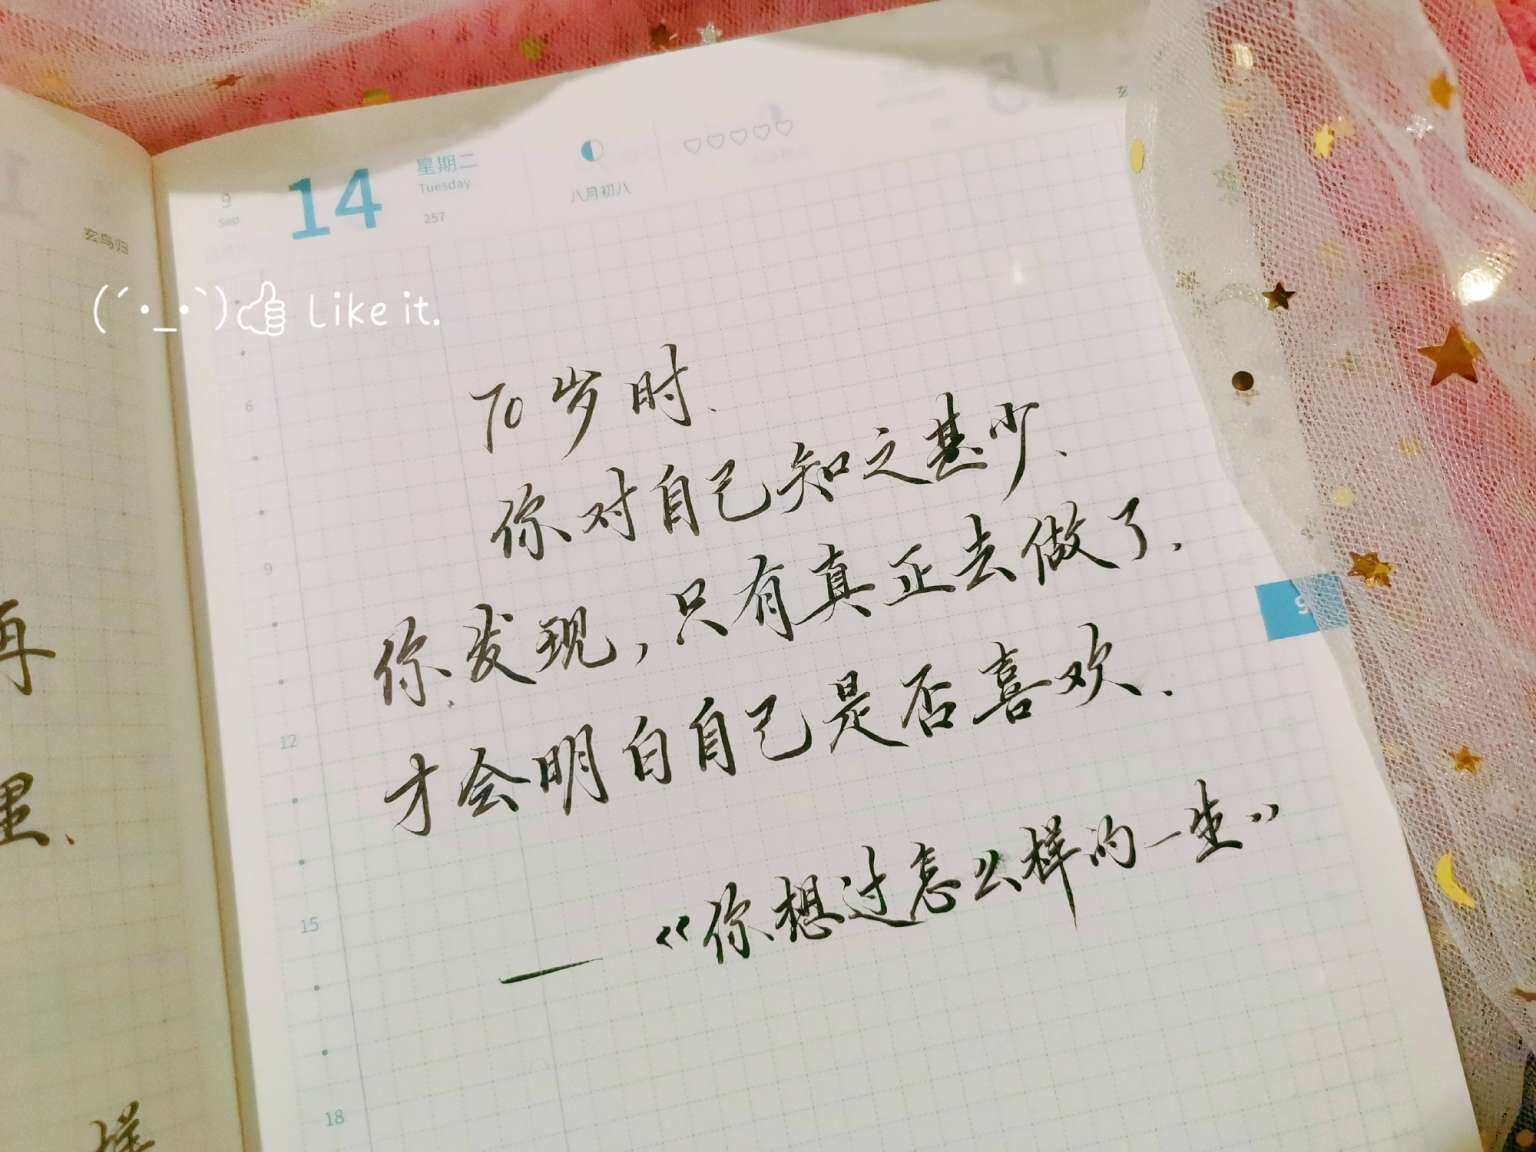 9
Sep
14
星期二
Tuesday
257
八月初八
玄鸟归
(´•_•`)👍 Like it.
70岁时.
你对自己知之甚少、
你发现,只有真正去做了.
才会明白自己是否喜欢.
——《你想过怎么样的一生》
6
9
12
15
18
9
再
里、
样